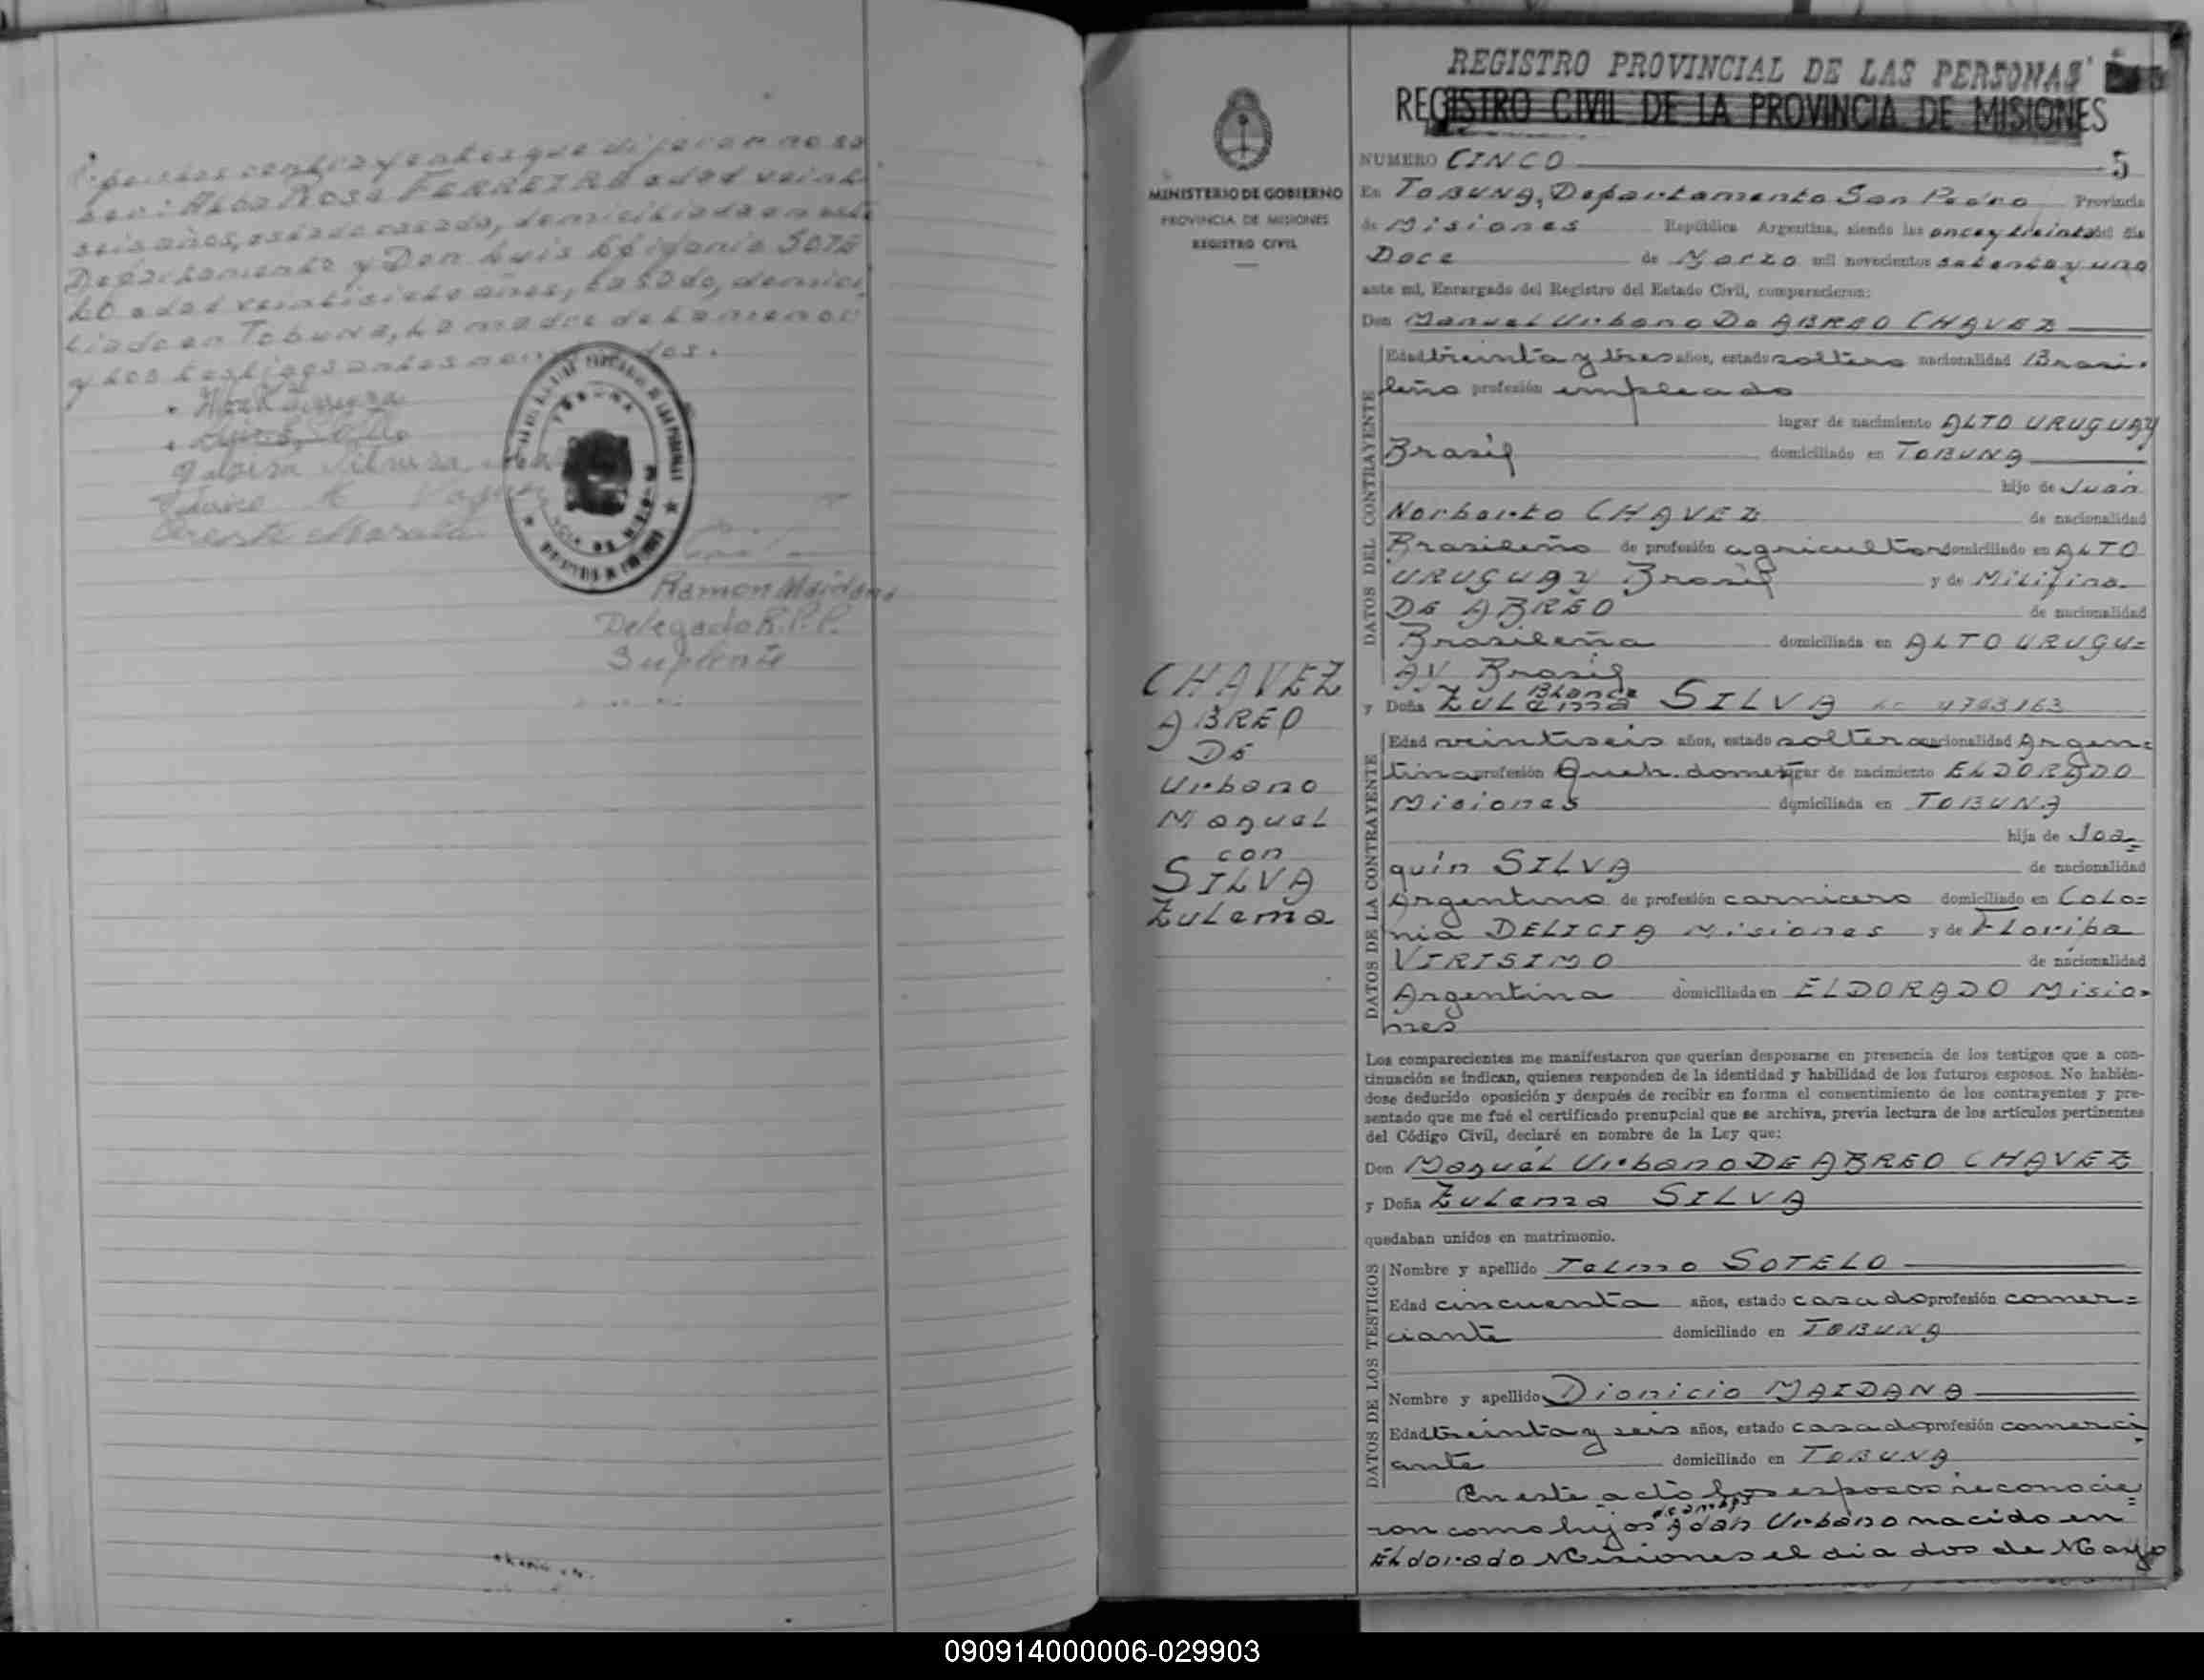 por los contrayentes que dijeron no sa
ber: Alba Rosa FERREIRA edad veinti
seis años, estado casada, domiciliada en este
Departamento y Don Luis Efigenio SOTE
LO edad veintisiete años, casado, domici
liado en Tobuna, la madre de la menor
y los testigos antes nombrados.
Ramon Maidana
Delegado R.P.P.
Suplente
MINISTERIO DE GOBIERNO
PROVINCIA DE MISIONES
REGISTRO CIVIL
CHAVEZ
ABREO
DE
Urbano
Manuel
con
SILVA
Zulema
REGISTRO PROVINCIAL DE LAS PERSONAS
REGISTRO CIVIL DE LA PROVINCIA DE MISIONES
NUMERO CINCO 5
En TOBUNA, Departamento San Pedro Provincia
de Misiones República Argentina, siendo las once y treinta del día
Doce de Marzo mil novecientos setenta y uno
ante mí, Encargado del Registro del Estado Civil, comparecieron:
Don Manuel Urbano De ABREO CHAVEZ
DATOS DEL CONTRAYENTE
Edad treinta y tres años, estado soltero nacionalidad Brasi-
leño profesión empleado
lugar de nacimiento ALTO URUGUAY
Brasil domiciliado en TOBUNA
hijo de Juan
Norberto CHAVEZ de nacionalidad
Brasileño de profesión agricultor domiciliado en ALTO
URUGUAY Brasil y de Milifina
DE ABREO de nacionalidad
Brasileña domiciliada en ALTO URUGU=
AY Brasil
Blanca
y Doña Zulema SILVA LC 4793163
DATOS DE LA CONTRAYENTE
Edad veintiseis años, estado soltera nacionalidad Argen=
tina profesión Queh. domest lugar de nacimiento ELDORADO
Misiones domiciliada en TOBUNA
hija de Joa=
quín SILVA de nacionalidad
Argentino de profesión carnicero domiciliado en Colo=
nia DELICIA Misiones y de Floripa
VIRISIMO de nacionalidad
Argentina domiciliada en ELDORADO Misio=
nes
Los comparecientes me manifestaron que querían desposarse en presencia de los testigos que a con-
tinuación se indican, quienes responden de la identidad y habilidad de los futuros esposos. No habién-
dose deducido oposición y después de recibir en forma el consentimiento de los contrayentes y pre-
sentado que me fué el certificado prenupcial que se archiva, previa lectura de los artículos pertinentes
del Código Civil, declaré en nombre de la Ley que:
Don Manuel Urbano DE ABREO CHAVEZ
y Doña Zulema SILVA
quedaban unidos en matrimonio.
DATOS DE LOS TESTIGOS
Nombre y apellido Telmo SOTELO
Edad cincuenta años, estado casado profesión comer=
ciante domiciliado en TOBUNA
Nombre y apellido Dionicio MAIDANA
Edad treinta y seis años, estado casado profesión comerci
ante domiciliado en TOBUNA
En este acto los esposos reconocie=
de ambos
ron como hijos Adan Urbano nacido en
Eldorado Misiones el dia dos de Mayo
090914000006-029903